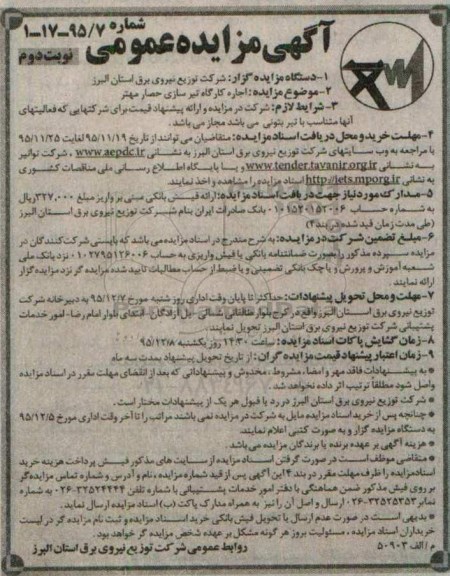 آگهی مزایده عمومی
شماره ۱-۱۷-۹۵/۷
نوبت دوم
۱-دستگاه مزایده گزار: شرکت توزیع نیروی برق استان البرز
۲-موضوع مزایده: اجاره کارگاه تیر سازی حصار مهتر
۳- شرایط لازم: شرکت در مزایده و ارائه پیشنهاد قیمت برای شرکتهایی که فعالیتهای
آنها متناسب با تیر بتونی می باشد مجاز می باشد.
۴-مهلت خرید و محل دریافت اسناد مزایده: متقاضیان می توانند از تاریخ ۹۵/۱۱/۱۹ لغایت ۹۵/۱۱/۲۵
با مراجعه به وب سایتهای شرکت توزیع نیروی برق استان البرز به نشانی www.aepdc.ir ، شرکت توانیر
به نشانی www.tender.tavanir.org.ir و یا پایگاه اطلاع رسانی ملی مناقصات کشوری
به نشانی http://iets.mporg.ir اسناد مزایده را مشاهده و اخذ نمایند.
۵-مدارک مورد نیاز جهت دریافت اسناد مزایده: ارائه فیش بانکی مبنی بر واریز مبلغ ۳۲۷,۰۰۰ ریال
به شماره حساب ۰۱۰۱۵۲۰۱۵۲۰۰۶ بانک صادرات ایران بنام شرکت توزیع نیروی برق استان البرز
(طی مدت زمان قید شده در بند ۴)
۶-مبلغ تضمین شرکت در مزایده: به شرح مندرج در اسناد مزایده می باشد که بایستی شرکت کنندگان در
مزایده سپرده مذکور را بصورت ضمانتنامه بانکی یا فیش واریزی به حساب ۰۱۰۲۷۹۵۱۲۶۰۰۶ نزد بانک ملی
شعبه آموزش و پرورش و یا چک بانکی تضمینی و یا ضبط از حساب مطالبات تایید شده مزایده گر نزد مزایده گزار
ارائه نمایند.
۷-مهلت و محل تحویل پیشنهادات: حداکثر تا پایان وقت اداری روز شنبه مورخ ۹۵/۱۲/۷ به دبیرخانه شرکت
توزیع نیروی برق استان البرز واقع در کرج بلوار طالقانی شمالی -پل آزادگان- ابتدای بلوار امام رضا- امور خدمات
پشتیبانی شرکت توزیع نیروی برق استان البرز تحویل نمایند.
۸-زمان گشایش پاکات اسناد مزایده: ساعت ۱۴:۳۰ روز یکشنبه ۹۵/۱۲/۸
۹-زمان اعتبار پیشنهاد قیمت مزایده گران: از تاریخ تحویل پیشنهاد بمدت سه ماه
* به پیشنهادات فاقد مهر و امضا، مشروط، مخدوش و پیشنهاداتی که بعد از انقضای مهلت مقرر در اسناد مزایده
واصل شود مطلقا ترتیب اثر داده نخواهد شد.
* شرکت توزیع نیروی برق استان البرز در رد یا قبول هر یک از پیشنهادات مختار است.
* چنانچه پس از خرید اسناد مزایده مایل به شرکت در مزایده نمی باشند مراتب را تا آخر وقت اداری مورخ ۹۵/۱۲/۵
به دستگاه مزایده گزار و به صورت کتبی اعلام نمایند.
* هزینه آگهی بر عهده برنده یا برندگان مزایده می باشد.
* متقاضی موظف است در صورت گرفتن اسناد مزایده از سایت های مذکور فیش پرداخت هزینه خرید
اسناد مزایده را ظرف مهلت مقرر در بند ۴ این آگهی پس از قید شماره مزایده، نام و آدرس و شماره تماس مزایده گر
بر روی فیش مذکور ضمن هماهنگی با دفتر امور خدمات پشتیبانی با شماره تلفن ۳۲۵۲۴۴۴۴-۰۲۶ به شماره
نمابر ۳۲۵۲۵۳۵۳-۰۲۶ ارسال و اصل آن را نیز به همراه مدارک پاکت (ب) اسناد مزایده ارسال نمایند.
* بدیهی است در صورت عدم ارسال یا تحویل فیش بانکی خرید اسناد مزایده و ثبت نام مزایده گر در لیست
خریداران اسناد مزایده ، مسئولیت بروز هر گونه مشکل بر عهده شخص مزایده گر خواهد بود.
م / الف ۵۰۹۰۳
روابط عمومی شرکت توزیع نیروی برق استان البرز